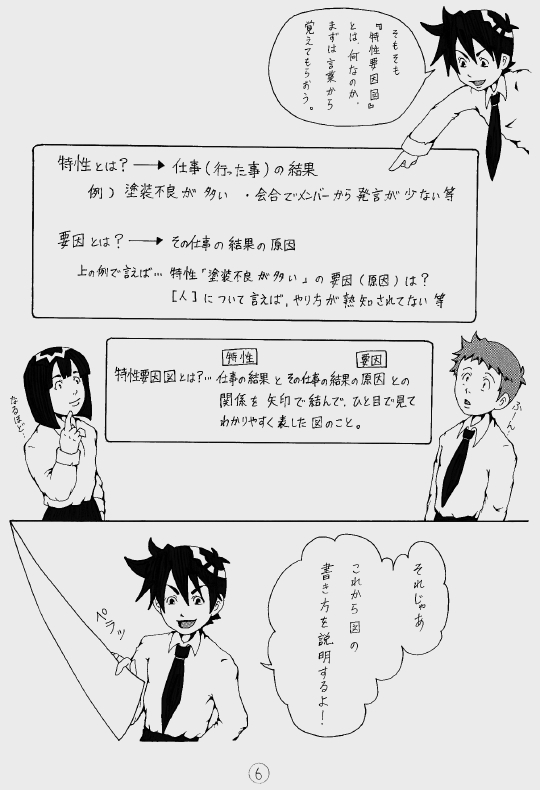 そもそも
『特性要因図』
とは、何なのか、
まずは言葉から
覚えてもらおう。
特性とは？→仕事（行った事）の結果
例）塗装不良が多い ・会合でメンバーから発言が少ない等
要因とは？→その仕事の結果の原因
上の例で言えば… 特性「塗装不良が多い」の要因（原因）は？
[人]について言えば、やり方が熟知されてない等
特性 要因
特性要因図とは？…仕事の結果とその仕事の結果の原因との
関係を矢印で結んで、ひと目で見て
わかりやすく表した図のこと。
なるほど…
ふーん
それじゃあ
これから図の
書き方を説明するよ！
ペラッ
6